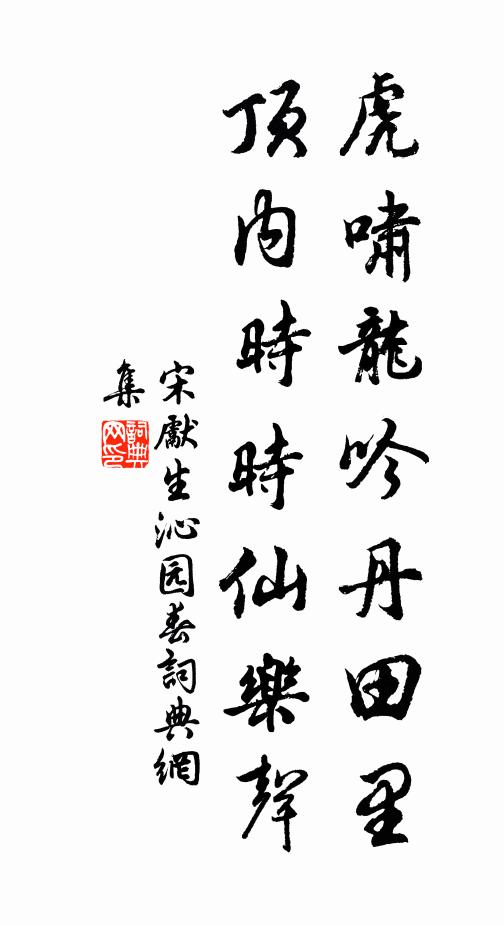 虎嘯龍吟丹田里
頂内時時仙樂聲
宋獻生沁园春詞典網
集
詞典
网印